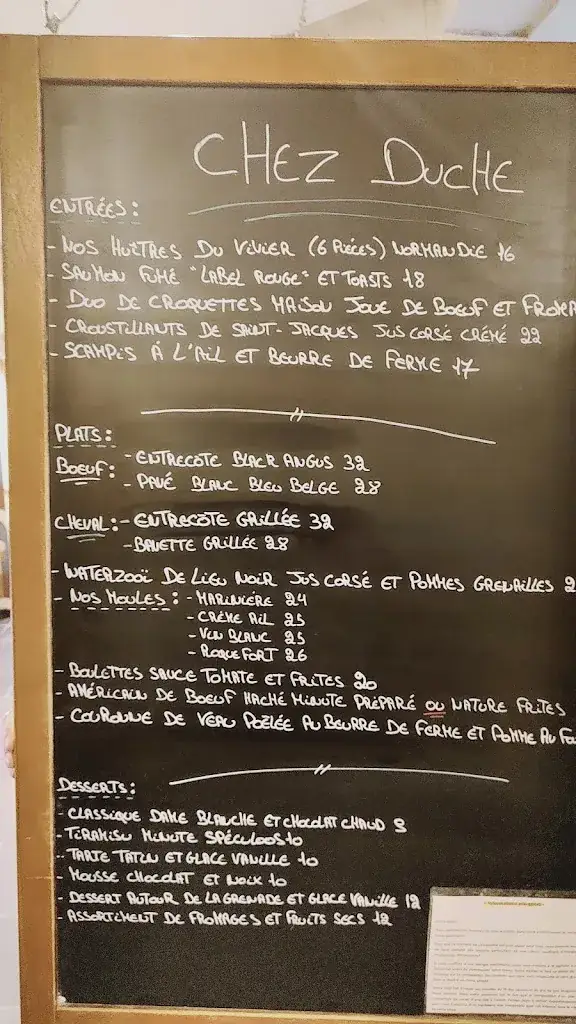 CHEZ DUCHE
ENTRÉES :
- NOS HUÎTRES DU VIVIER (6 PIÈCES) NORMANDIE 16
- SAUMON FUMÉ "LABEL ROUGE" ET TOASTS 18
- DUO DE CROQUETTES MAISON JOUE DE BOEUF ET FROMA
- CROUSTILLANTS DE SAINT-JACQUES JUS CORSÉ CRÉMÉ 22
- SCAMPIS À L'AIL ET BEURRE DE FERME 17
PLATS :
BOEUF : - ENTRECOTE BLACK ANGUS 32
- PAVÉ BLANC BLEU BELGE 28
CHEVAL : - ENTRECOTE GRILLÉE 32
- BAVETTE GRILLÉE 28
- WATERZOOÏ DE LIEU NOIR JUS CORSÉ ET POMMES GRENAILLES 2
- NOS MOULES : - MARINIÈRE 24
- CRÈME AIL 25
- VIN BLANC 25
- ROQUEFORT 26
- BOULETTES SAUCE TOMATE ET FRITES 20
- AMÉRICAIN DE BOEUF HACHÉ MINUTE PRÉPARÉ OU NATURE FRITES
- COURONNE DE VEAU POÊLÉE AU BEURRE DE FERME ET POMME AU FO
DESSERTS :
- CLASSIQUE DAME BLANCHE ET CHOCOLAT CHAUD 9
- TIRAMISU MINUTE SPÉCULOOS 10
- TARTE TATIN ET GLACE VANILLE 10
- MOUSSE CHOCOLAT ET NOIX 10
- DESSERT AUTOUR DE LA GRENADE ET GLACE VANILLE 12
- ASSORTIMENT DE FROMAGES ET FRUITS SECS 12